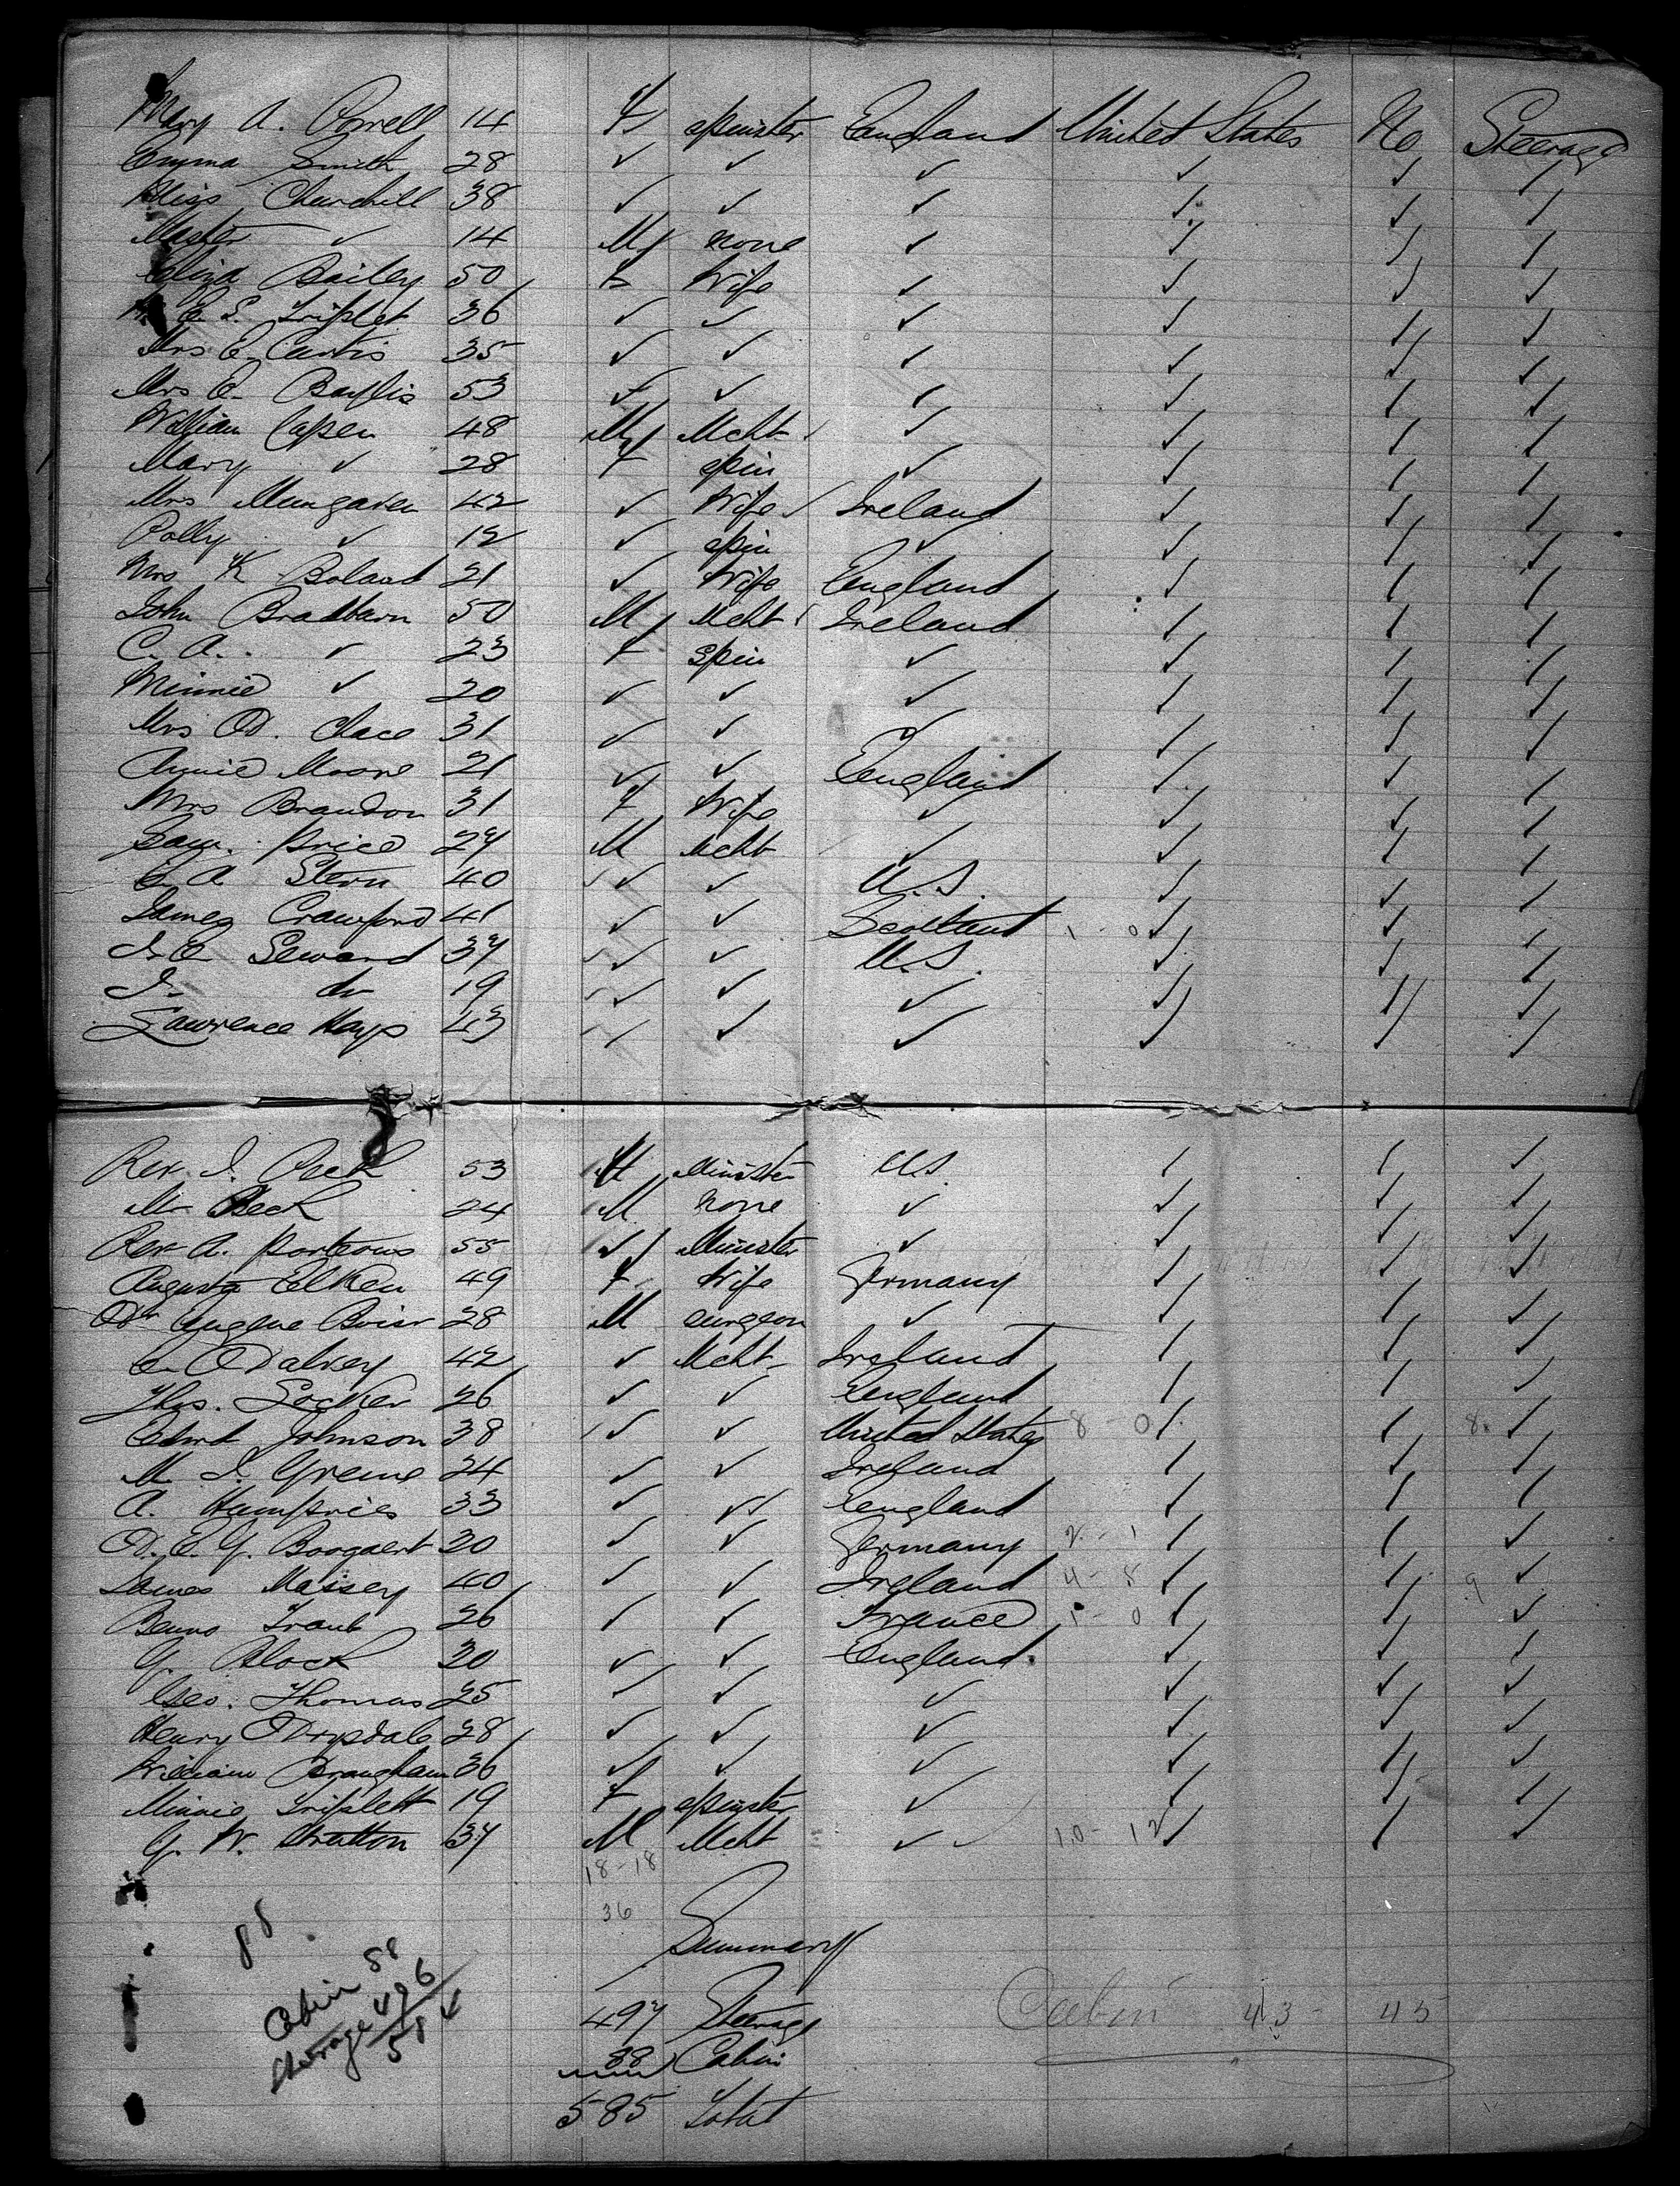 Mary A. Powell 14 F spinster England United States No Steerage
Emma Smith 28 ✓ ✓ ✓ ✓ ✓ ✓
Miss Churchill 38 ✓ ✓ ✓ ✓ ✓ ✓
Master ✓ 14 M none ✓ ✓ ✓ ✓
Eliza Bailey 50 F Wife ✓ ✓ ✓ ✓
E. S. Triplet 36 ✓ ✓ ✓ ✓ ✓ ✓
Mrs E. Curtis 35 ✓ ✓ ✓ ✓ ✓ ✓
Mrs E. Baylis 53 ✓ ✓ ✓ ✓ ✓ ✓
William Capen 48 M Mcht ✓ ✓ ✓ ✓
Mary ✓ 28 F spin ✓ ✓ ✓ ✓
Mrs Mungaven 42 ✓ Wife Ireland ✓ ✓ ✓
Polly ✓ 12 ✓ spin ✓ ✓ ✓ ✓
Mrs K Boland 21 ✓ Wife England ✓ ✓ ✓
John Bradburn 50 M Mcht Ireland ✓ ✓ ✓
C. A. ✓ 23 F Spin ✓ ✓ ✓ ✓
Minnie ✓ 20 ✓ ✓ ✓ ✓ ✓ ✓
Mrs D. Chace 31 ✓ ✓ ✓ ✓ ✓ ✓
Annie Moore 21 ✓ ✓ England ✓ ✓ ✓
Mrs Brandon 31 F Wife ✓ ✓ ✓ ✓
Sam. Price 29 M Mcht ✓ ✓ ✓ ✓
E. A Stern 40 ✓ ✓ U.S. ✓ ✓ ✓
James Crawford 41 ✓ ✓ Scotland 1 - 0 ✓ ✓ ✓
J. E Seward 37 ✓ ✓ U.S. ✓ ✓ ✓
J. do 19 ✓ ✓ ✓ ✓ ✓ ✓
Lawrence Hays 43 ✓ ✓ ✓ ✓ ✓ ✓
Rev. J. Peck 53 M Minister U.S. ✓ ✓ ✓
Mr Peck 24 M none ✓ ✓ ✓ ✓
Rev A. Porteous 55 ✓ Minister ✓ ✓ ✓ ✓
Augusta Elken 49 F Wife Germany ✓ ✓ ✓
Dr Eugene 28 M surgeon ✓ ✓ ✓ ✓
42 ✓ Mcht Ireland ✓ ✓ ✓
Thos. Locker 26 ✓ ✓ England ✓ ✓ ✓
Edwd Johnson 38 ✓ ✓ United States 8 - 0 ✓ ✓ 8 ✓
M. J. Greene 24 ✓ ✓ Ireland ✓ ✓ ✓
A. Humpries 33 ✓ ✓ England ✓ ✓ ✓
D. E. G. Boogaert 30 ✓ ✓ Germany 2 - 1 ✓ ✓ ✓
James Massey 40 ✓ ✓ Ireland 4 - 5 ✓ ✓ 9 ✓
Benno Traub 26 ✓ ✓ France 1 - 0 ✓ ✓ ✓
G. Block 30 ✓ ✓ England ✓ ✓ ✓
Geo. Thomas 25 ✓ ✓ ✓ ✓ ✓ ✓
Henry Drysdale 28 ✓ ✓ ✓ ✓ ✓ ✓
William Brougham 36 ✓ ✓ ✓ ✓ ✓ ✓
Minnie Triplett 19 F spinster ✓ ✓ ✓ ✓
G. W. Stratton 37 M Mcht ✓ 10 - 12 ✓ ✓ ✓
18 - 18
36
Summary
88
Cabin 88
Steerage 496
584
497 Steerage
88 Cabin
585 Total
Cabin 43 - 45